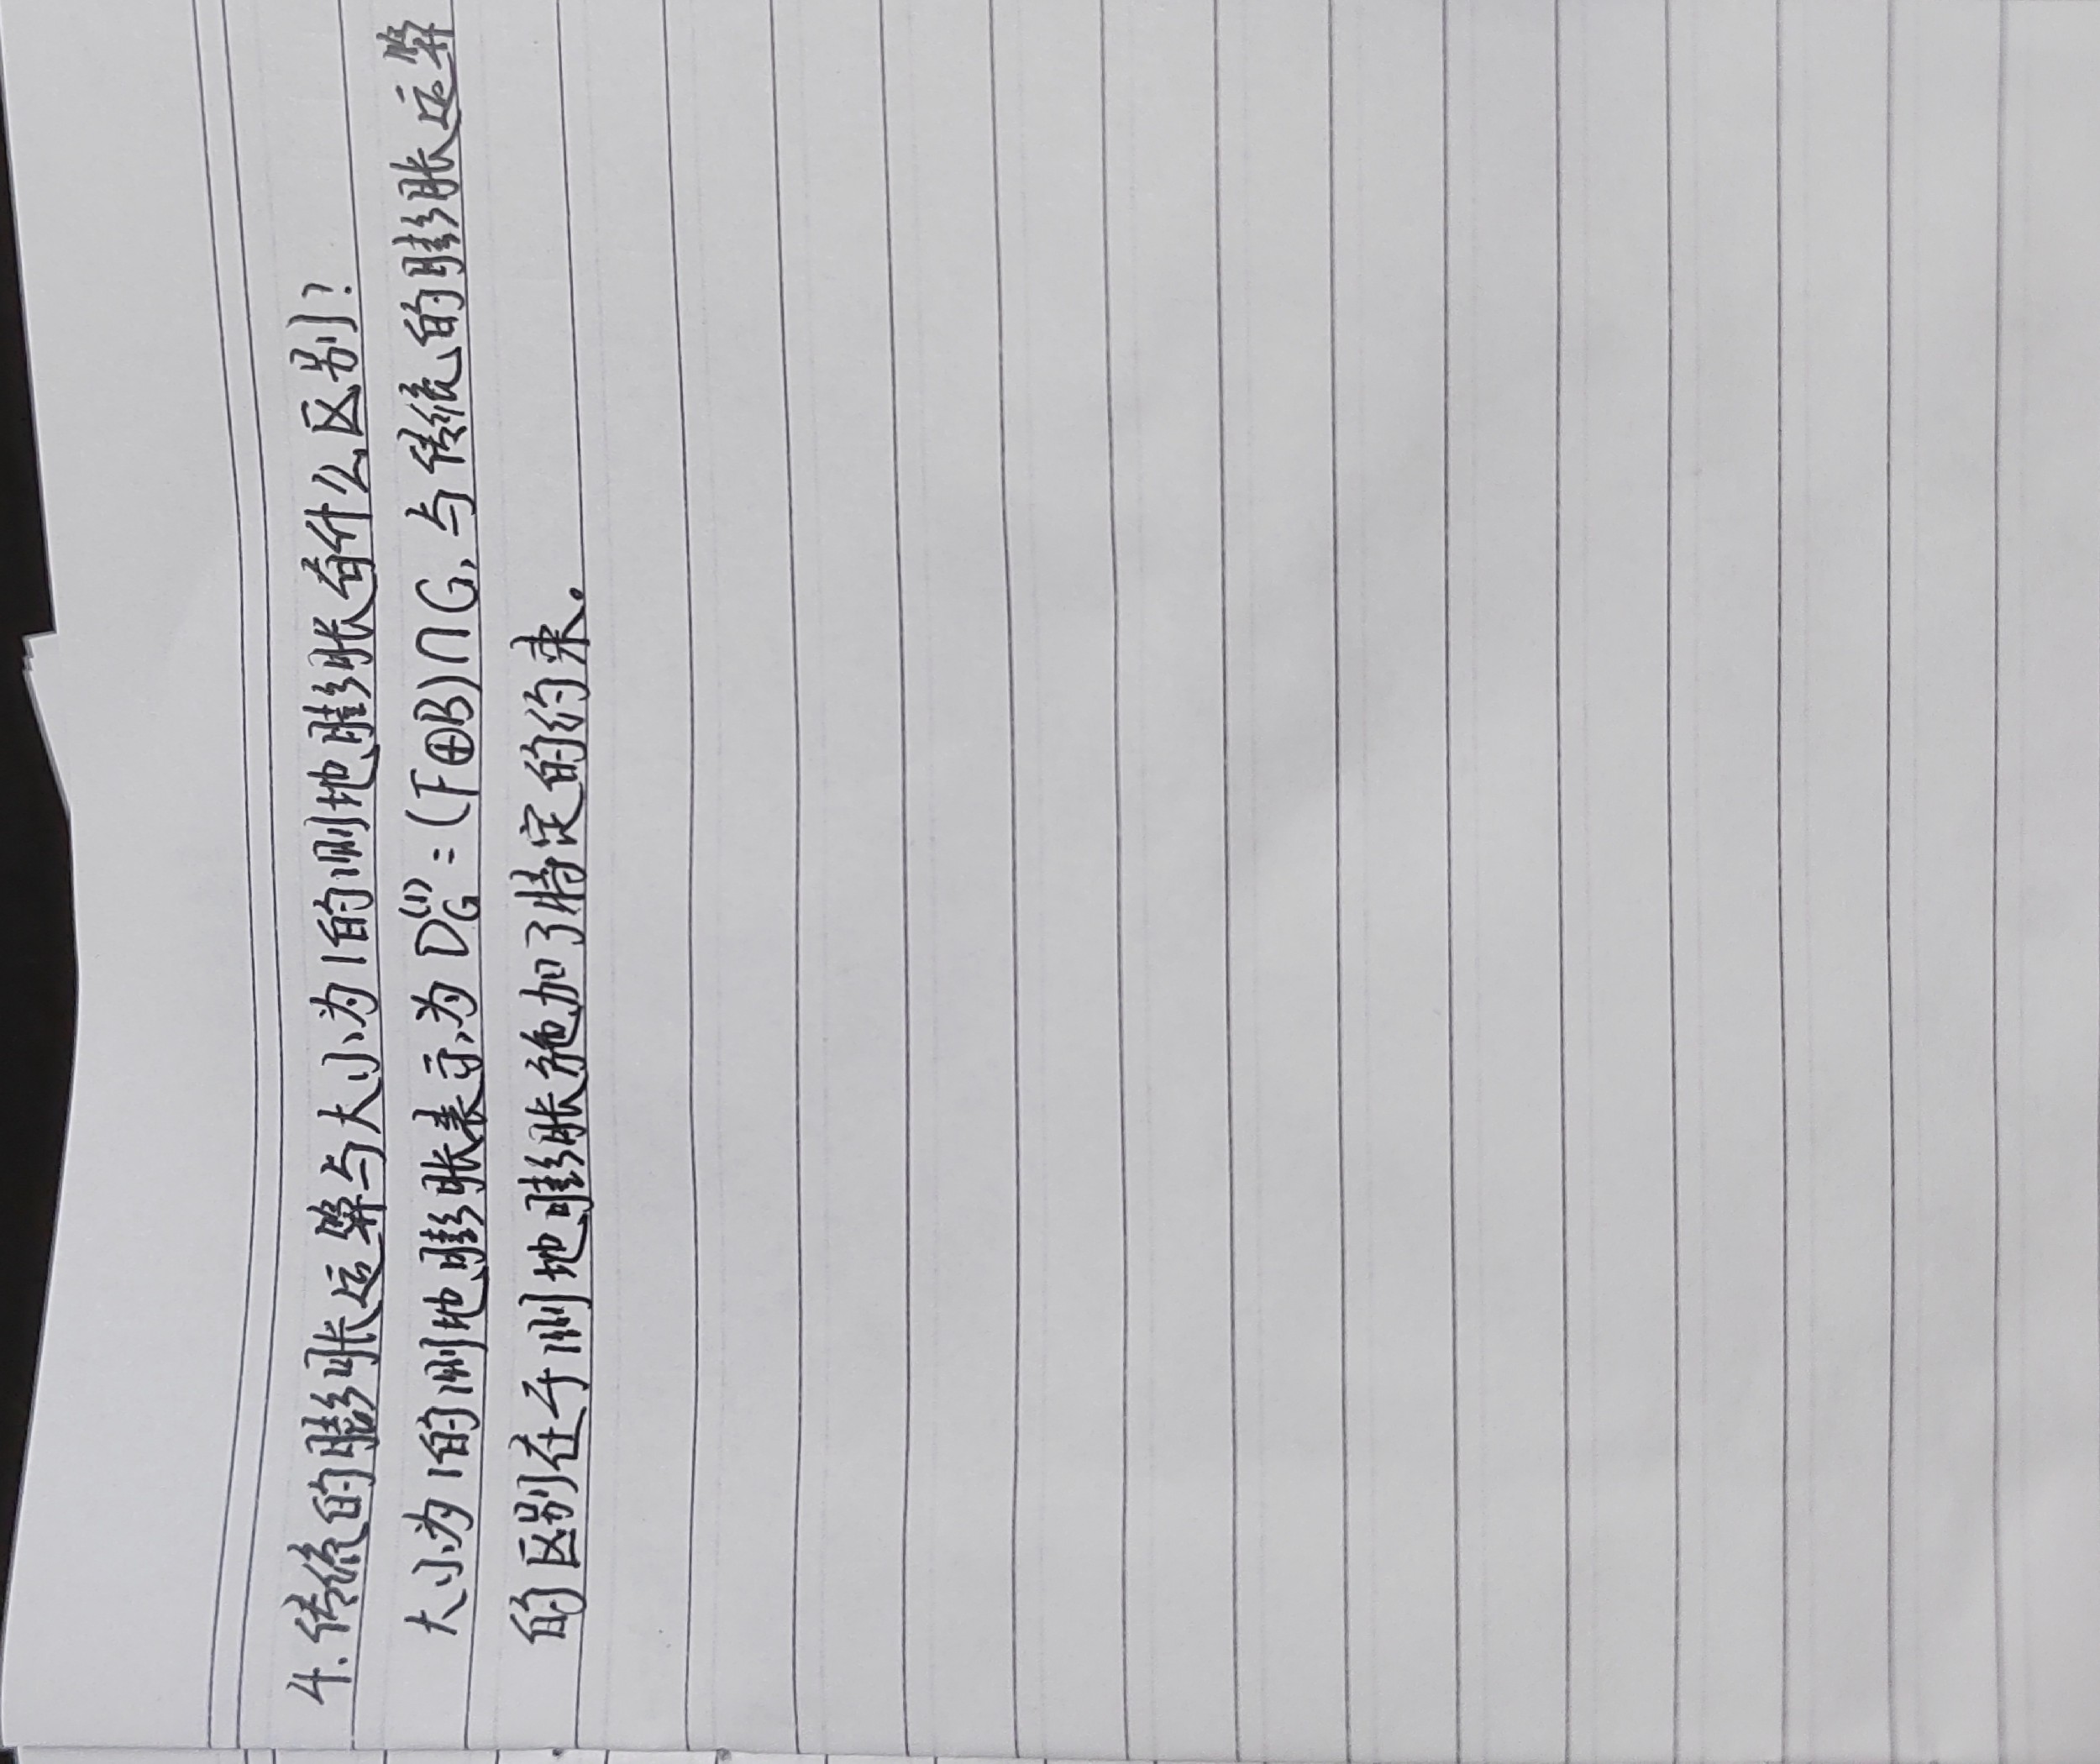 4.传统的膨胀运算与大小为1的测地膨胀有什么区别?
大小为1的测地膨胀表示为 D_G^(1) = (F⊕B)∩G, 与传统的膨胀运算
的区别在于测地膨胀施加了特定的约束。